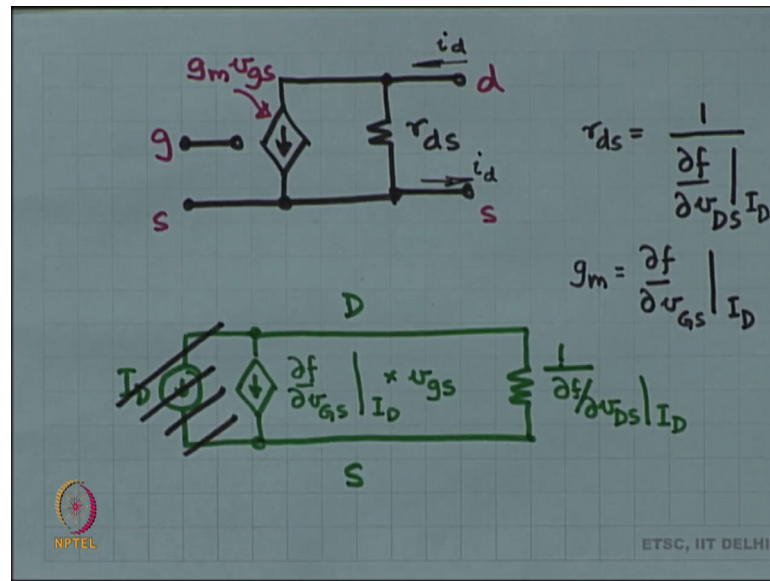 i_d
g_m v_gs
d
g
r_ds
i_d
s
s
r_ds = 1 / ∂f/∂v_DS | I_D
g_m = ∂f/∂v_GS | I_D
D
I_D
∂f/∂v_GS | I_D × v_gs
1 / ∂f/∂v_DS | I_D
S
NPTEL
ETSC, IIT DELHI